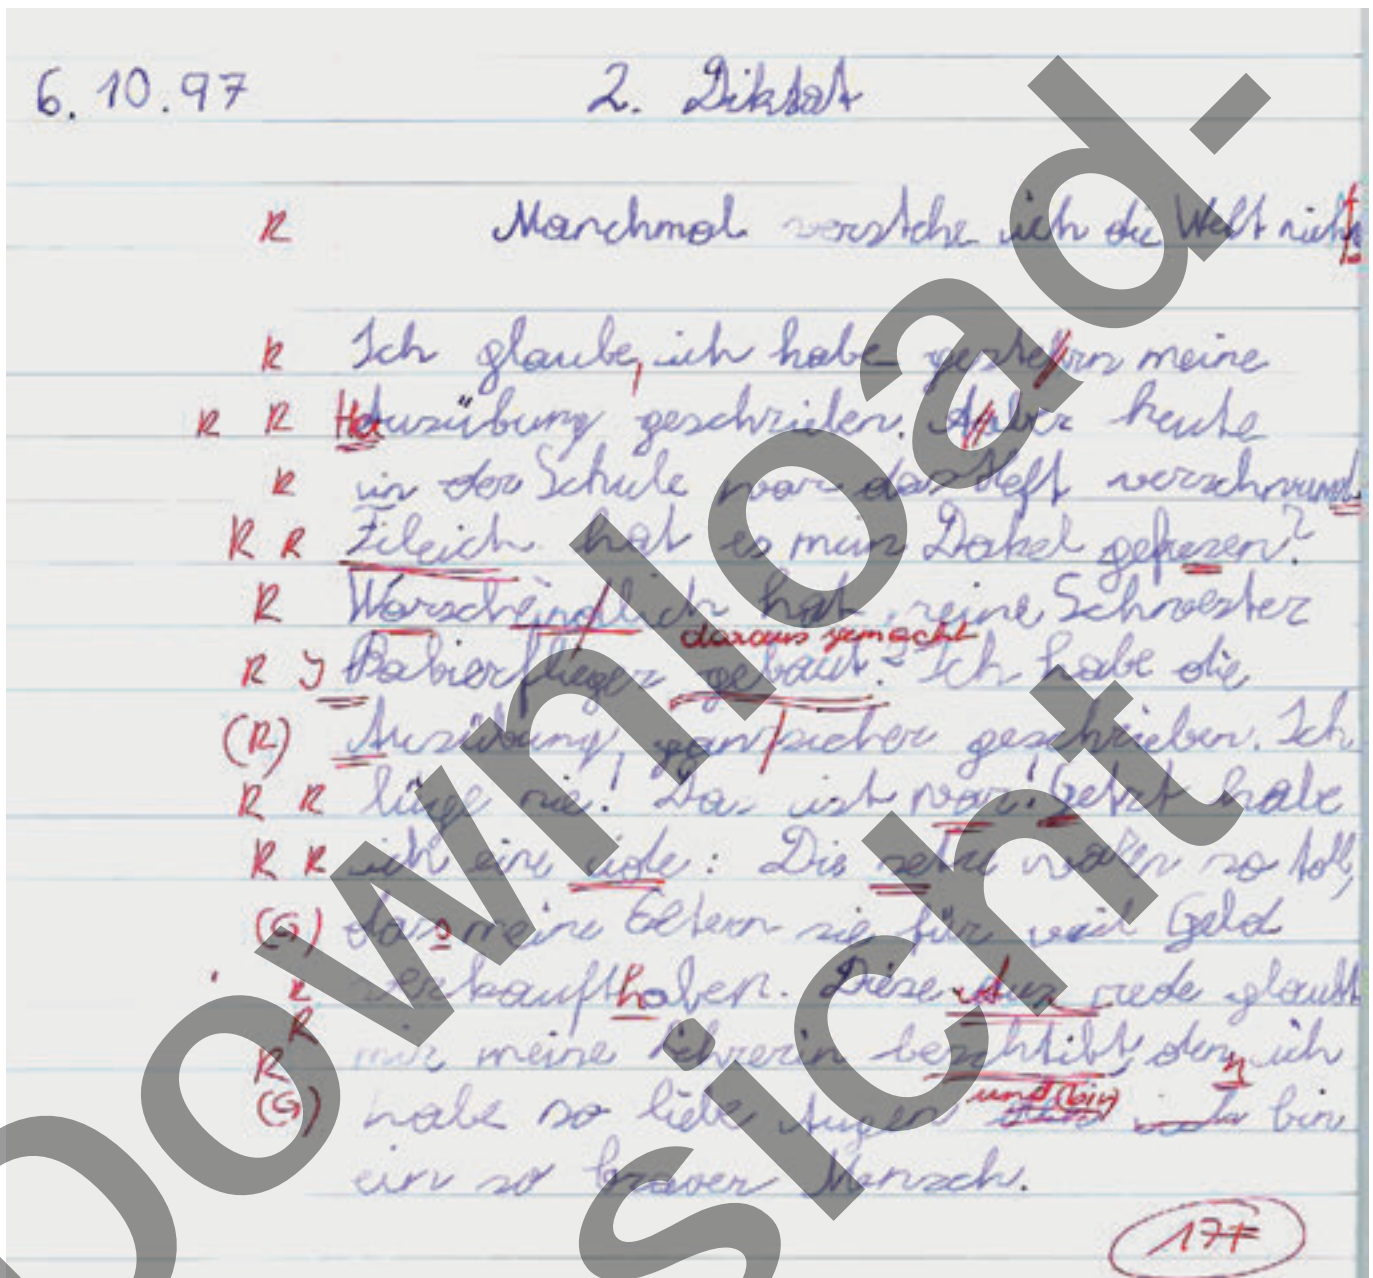 6.10.97 2. Diktat
R Manchmal verstehe ich die Welt nicht
R Ich glaube, ich habe gestern meine
R R Hausübung geschrieben. Aber heute
R in der Schule war das Heft verschwund
R R Fileich hat es mein Dakel gefresen?
R Warscheindlich hat meine Schwester
daraus gemacht
R J Babierflieger gebaut? Ich habe die
(R) Ausübung, ganz sicher geschrieben. Ich
R R lüge nie! Das ist war! Getzt habe
R R ich eine iide: Die setze waren so toll,
(G) das s meine Eltern sie für viel Geld
R verkauft haben. Diese Aus rede glaubt
R
R mir meine Lehrerin beschtibt, den n ich
und (bin)
(G) habe so liebe Augen bin
ein so braver Mensch.
17 F
Download-
sicht